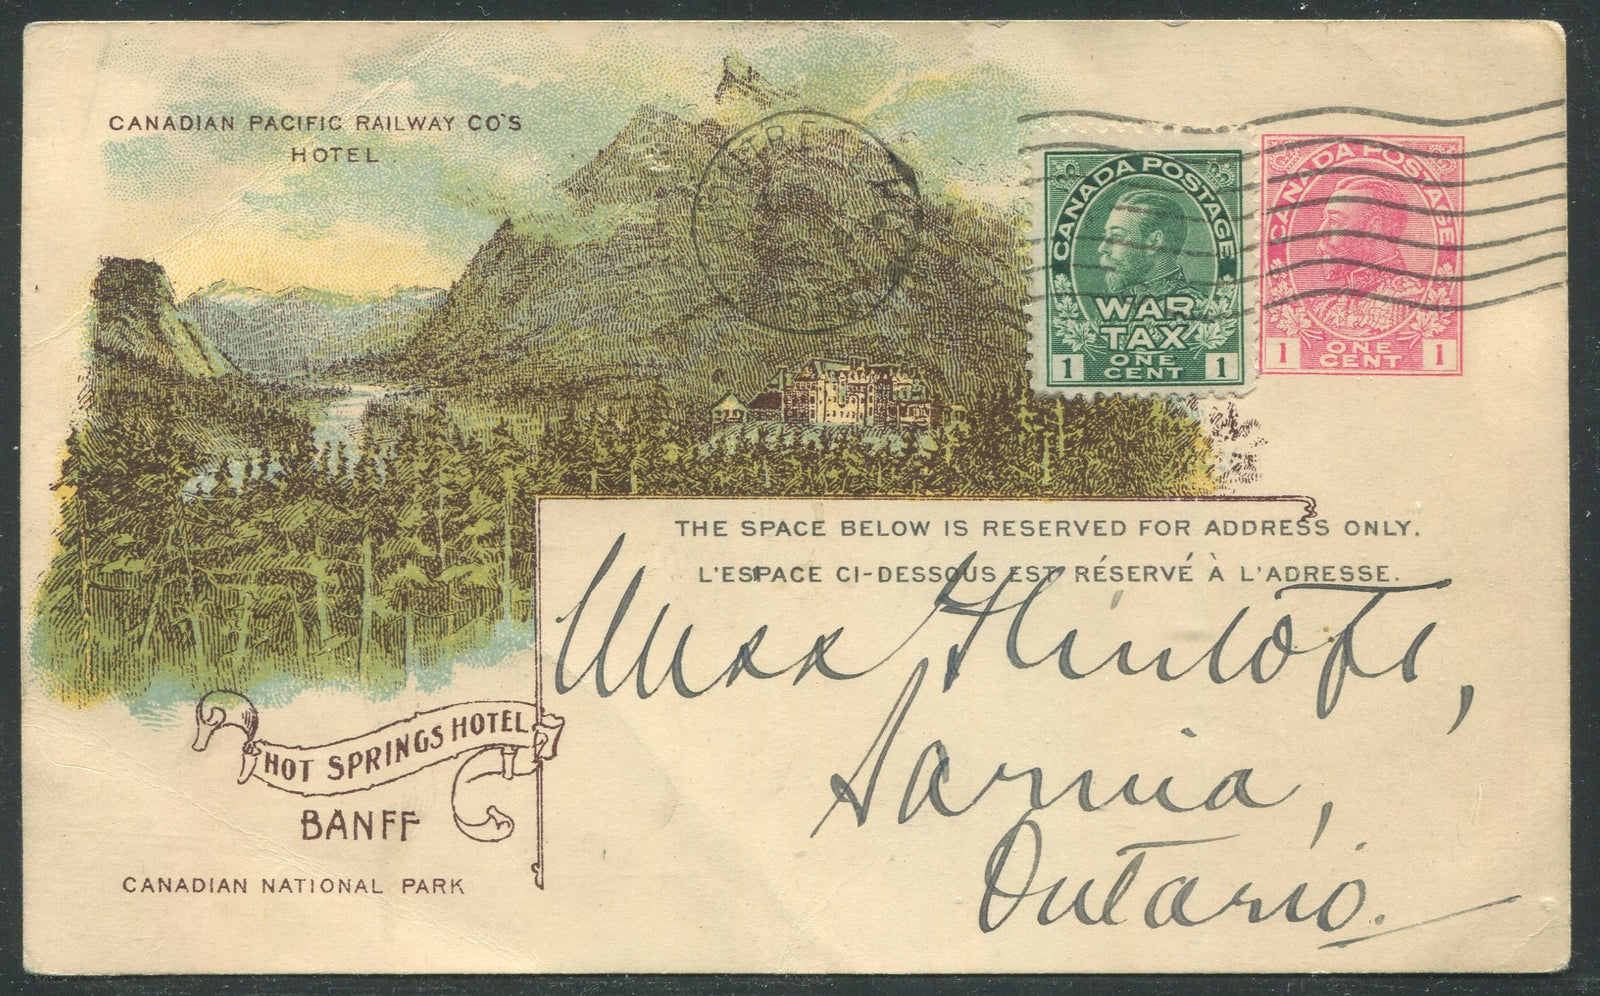 CANADIAN PACIFIC RAILWAY CO'S
HOTEL.
CANADA POSTAGE
WAR
TAX
ONE
CENT
1 1
CANADA POSTAGE
ONE
CENT
1 1
THE SPACE BELOW IS RESERVED FOR ADDRESS ONLY.
L'ESPACE CI-DESSOUS EST RÉSERVÉ À L'ADRESSE.
Miss
Sarnia,
Ontario.
HOT SPRINGS HOTEL
BANFF
CANADIAN NATIONAL PARK